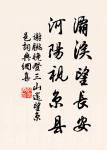 灞涘望長安
河陽視京縣
謝朓晚登三山還望京
邑詞典網集